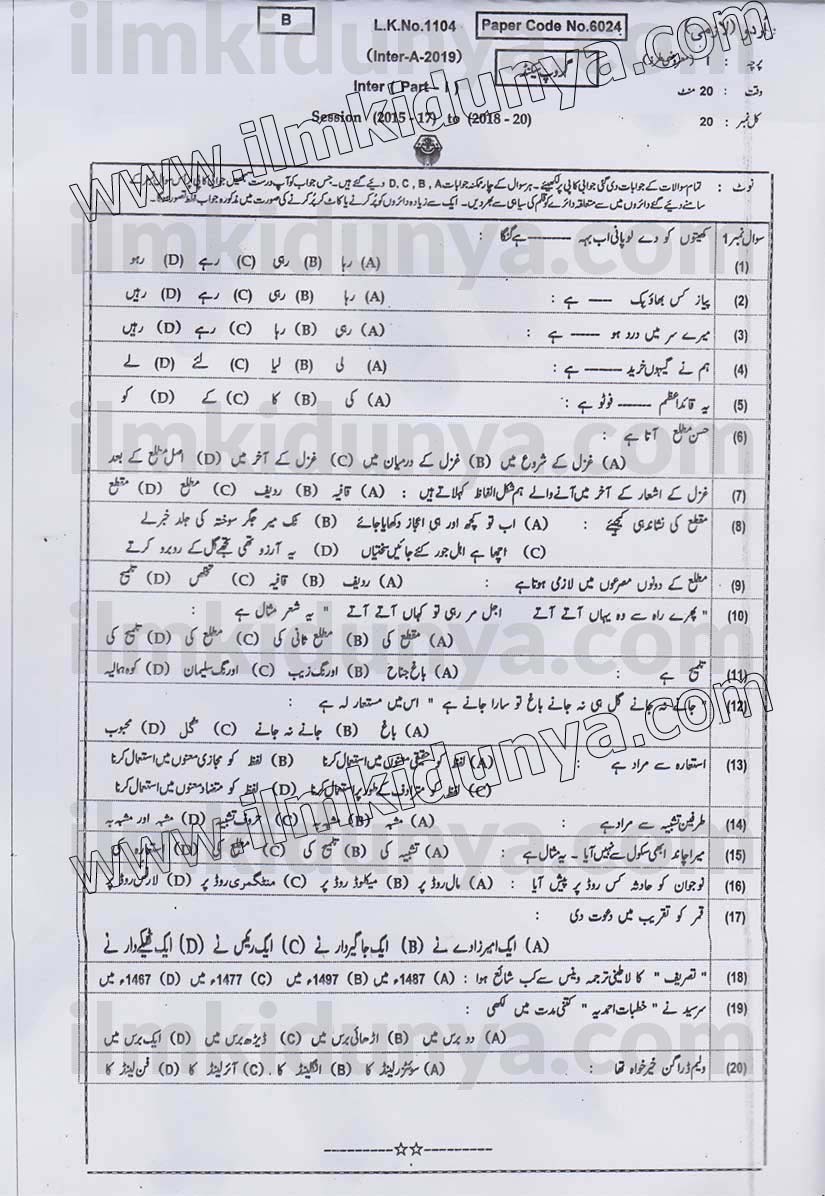 B
L.K.No.1104
Paper Code No.6024
اُردو (لازمی)
(Inter-A-2019)
گروپ پہلا
پرچہ : I (معروضی طرز)
Inter (Part - I)
وقت : 20 منٹ
Session (2015 - 17) to (2018 - 20)
کل نمبر : 20
نوٹ : تمام سوالات کے جوابات دی گئی جوابی کاپی پر لکھیئے۔ ہر سوال کے چار ممکنہ جوابات D, C, B, A دیئے گئے ہیں۔ جس جواب کو آپ درست سمجھیں جوابی کاپی پر اس سوال نمبر کے
سامنے دیئے گئے دائروں میں سے متعلقہ دائرے کو قلم کی سیاہی سے بھر دیں۔ ایک سے زیادہ دائروں کو پُر کرنے یا کاٹ کر پُر کرنے کی صورت میں مذکورہ جواب غلط تصور ہوگا۔
سوال نمبر 1 کھیتوں کو دے لو پانی اب بہہ -------- ہے گنگا :
(1) (A) رہا (B) رہی (C) رہے (D) رہو
(2) پیاز کس بھاؤ پک ---- ہے : (A) رہا (B) رہی (C) رہے (D) رہیں
(3) میرے سر میں درد ہو ------ ہے : (A) رہی (B) رہا (C) رہے (D) رہیں
(4) ہم نے گیہوں خرید ------ ہے : (A) لی (B) لیا (C) لئے (D) لے
(5) یہ قائداعظم ------ فوٹو ہے : (A) کی (B) کا (C) کے (D) کو
(6) حسن مطلع آتا ہے :
(A) غزل کے شروع میں (B) غزل کے درمیان میں (C) غزل کے آخر میں (D) اصل مطلع کے بعد
(7) غزل کے اشعار کے آخر میں آنے والے ہم شکل الفاظ کہلاتے ہیں : (A) قافیہ (B) ردیف (C) مطلع (D) مقطع
(8) مقطع کی نشاندہی کیجئے : (A) اب تو کچھ اور ہی اعجاز دکھایا جائے (B) ٹک میر جگر سوختہ کی جلد خبر لے
(C) اچھا ہے اہل جور کئے جائیں سختیاں (D) یہ آرزو تھی تجھے گل کے روبرو کرتے
(9) مطلع کے دونوں مصرعوں میں لازمی ہوتا ہے : (A) ردیف (B) قافیہ (C) تخلص (D) تلمیح
(10) " پھرے راہ سے وہ یہاں آتے آتے اجل مر رہی تو کہاں آتے آتے " یہ شعر مثال ہے :
(A) مقطع کی (B) مطلع ثانی کی (C) مطلع کی (D) تلمیح کی
(11) تلمیح ہے : (A) باغ جناح (B) اورنگ زیب (C) اورنگ سلیمان (D) کوہ ہمالیہ
(12) " جانے نہ جانے گل ہی نہ جانے باغ تو سارا جانے ہے " اس میں مستعار لہ ہے :
(A) باغ (B) جانے نہ جانے (C) گل (D) محبوب
(13) استعارہ سے مراد ہے : (A) لفظ کو حقیقی معنوں میں استعمال کرنا (B) لفظ کو مجازی معنوں میں استعمال کرنا
(C) لفظ کو مترادف کے طور پر استعمال کرنا (D) لفظ کو متضاد معنوں میں استعمال کرنا
(14) طرفین تشبیہ سے مراد ہے : (A) مشبہ (B) مشبہ بہ (C) حروف تشبیہ (D) مشبہ اور مشبہ بہ
(15) میرا چاند ابھی سکول سے نہیں آیا۔ یہ مثال ہے : (A) تشبیہ کی (B) تلمیح کی (C) مطلع کی (D) استعارہ کی
(16) نوجوان کو حادثہ کس روڈ پر پیش آیا : (A) مال روڈ پر (B) میکلوڈ روڈ پر (C) منٹگمری روڈ پر (D) لارنس روڈ پر
(17) قمر کو تقریب میں دعوت دی :
(A) ایک امیر زادے نے (B) ایک جاگیردار نے (C) ایک رئیس نے (D) ایک ٹھیکے دار نے
(18) " تصریف " کا لاطینی ترجمہ وینس سے کب شائع ہوا : (A) 1487ء میں (B) 1497ء میں (C) 1477ء میں (D) 1467ء میں
(19) سرسید نے " خطبات احمدیہ " کتنی مدت میں لکھی :
(A) دو برس میں (B) اڑھائی برس میں (C) ڈیڑھ برس میں (D) ایک برس میں
(20) ولیم ڈراگن خیر خواہ تھا : (A) سوئٹزرلینڈ کا (B) انگلینڈ کا (C) آئرلینڈ کا (D) فن لینڈ کا
---------☆☆---------
www.ilmkidunya.com
www.ilmkidunya.com
www.ilmkidunya.com
ilmkidunya.com
ilmkidunya.com
ilmkidunya.com
ilmkidunya.com
ilmkidunya.com
ilmkidunya.com